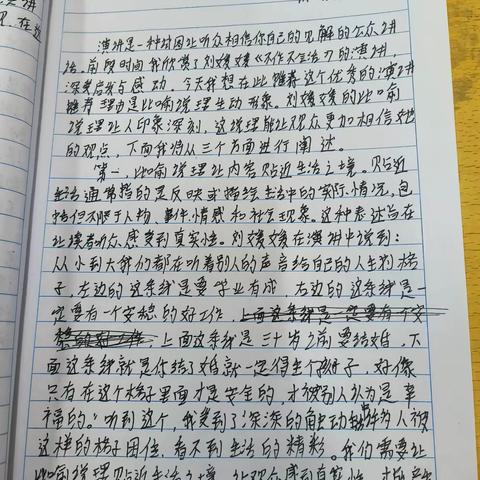 演讲是一种试图让听众相信你自己的见解的公众讲
话。前段时间我欣赏了刘媛媛《不作不会活》的演讲,
深受启发与感动。今天我想在此推荐这个优秀的演讲
推荐理由是比喻说理生动形象。刘媛媛的比喻
说理让人印象深刻,这说理能让观众更加相信她
的观点,下面我将从三个方面进行阐述。
第一,比喻说理让内容贴近生活之境。贴近
生活通常指的是反映或描绘生活中的实际情况,包
括但不限于人物、事件、情感和社会现象。这种表述旨在
让读者听众感受到真实性。刘媛媛在演讲中说到:
从小到大我们都在听着别人的声音给自己的人生划格
子,左边的这条线是要学业有成,右边的这条线是一
定要有一个安稳的好工作,
上面这条线是三十岁之前要结婚,下
面这条线就是你结了婚就一定得生个孩子,好像
只有在这个格子里面才是安全的,才被别人认为是幸
福的。"听到这个,我受到了深深的触动 为人被
这样的格子困住,看不到生活的精彩。我们需要让
比喻说理贴近生活之境,让观众感到真实性,才能